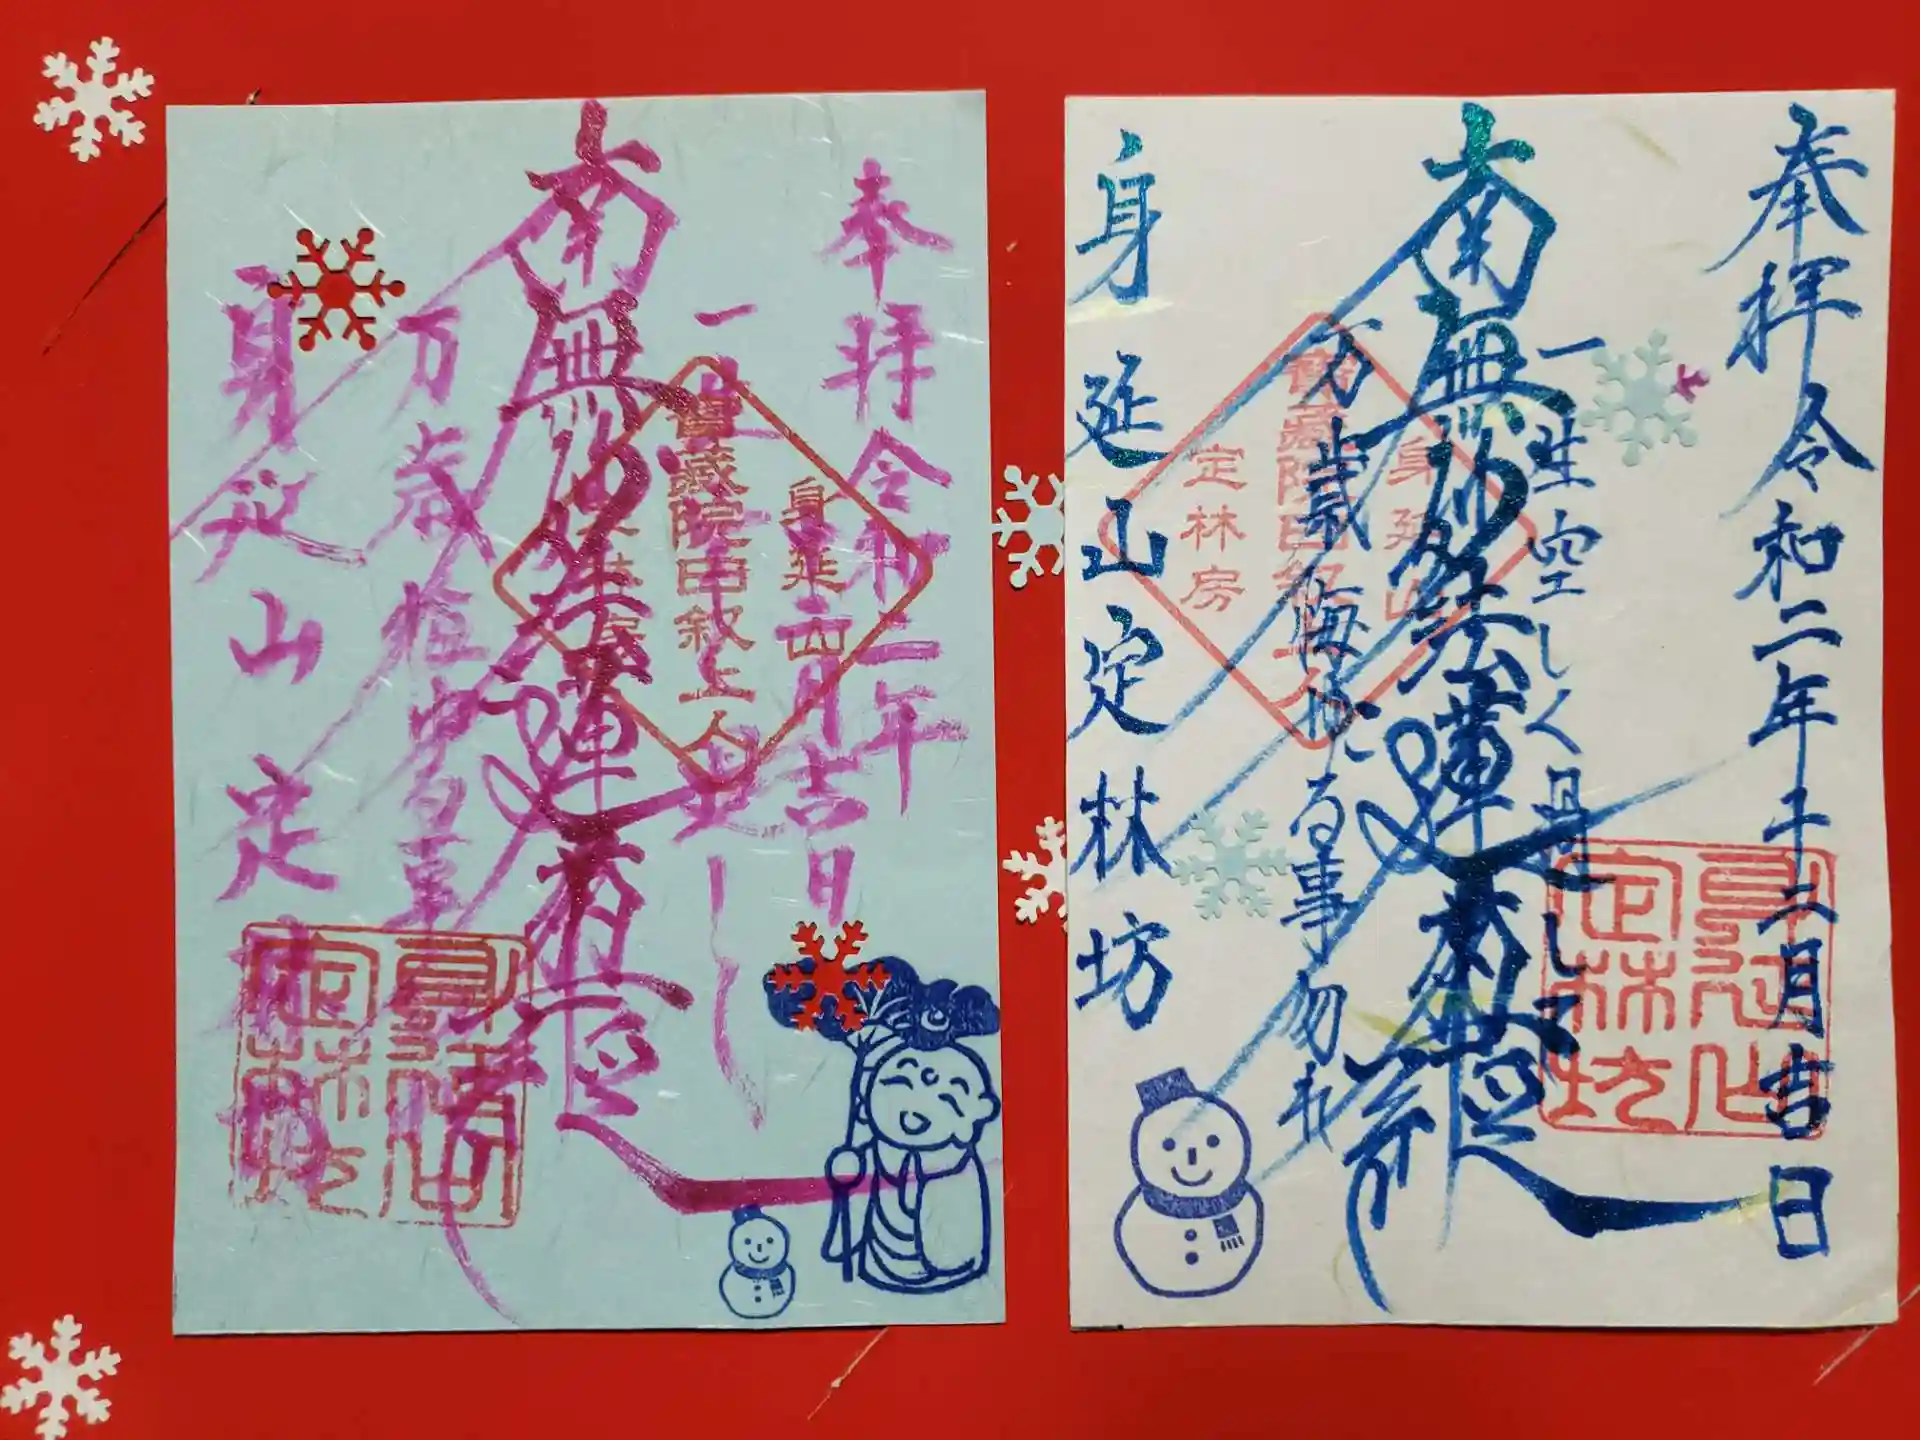 奉拝令和二年十二月吉日
一生空しく過して
南無妙法蓮華経
万歳悔
る事勿れ
身延山定林坊
身延山
寶蔵院日叙上人
定林房
身延山
定林坊
奉拝令和二年
月吉日
南無妙法蓮華経
万歳
身延山定林坊
身延山
寶蔵院日叙上人
定林房
身延山
定林坊